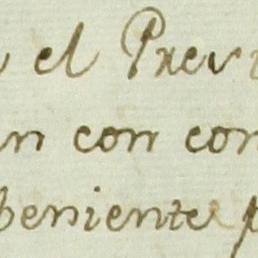 el Prev
n con con
beniente p